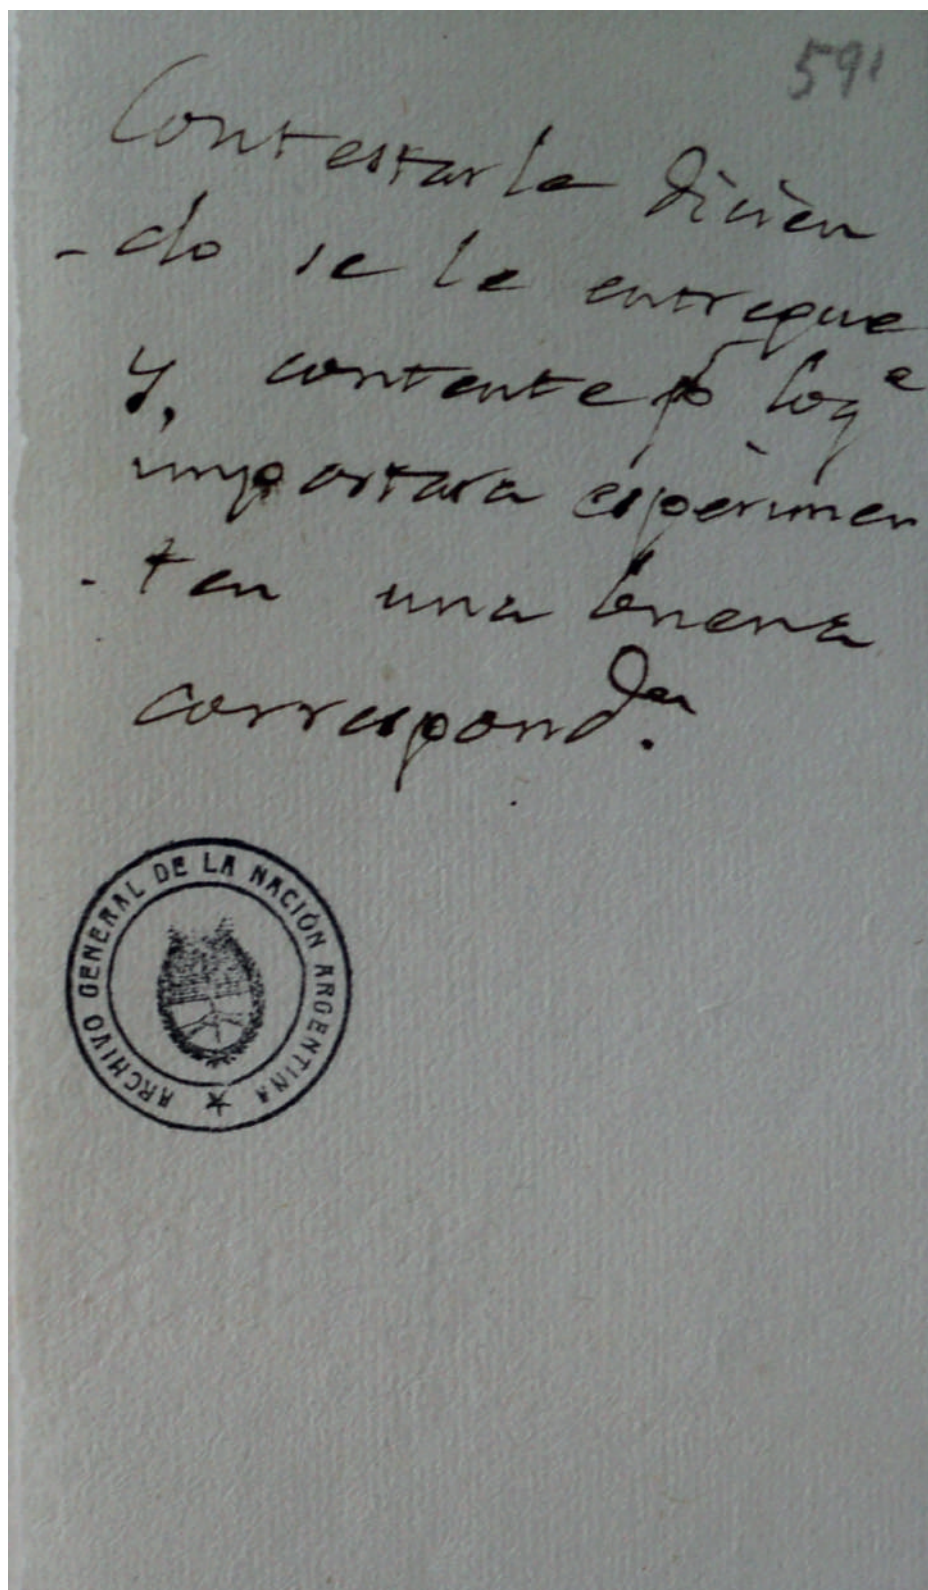 591
Contestarle dicien
-do se le entregue
y, contente p loqe
importara esperimen
-ten una buena
correspondcia.
ARCHIVO GENERAL DE LA NACIÓN ARGENTINA